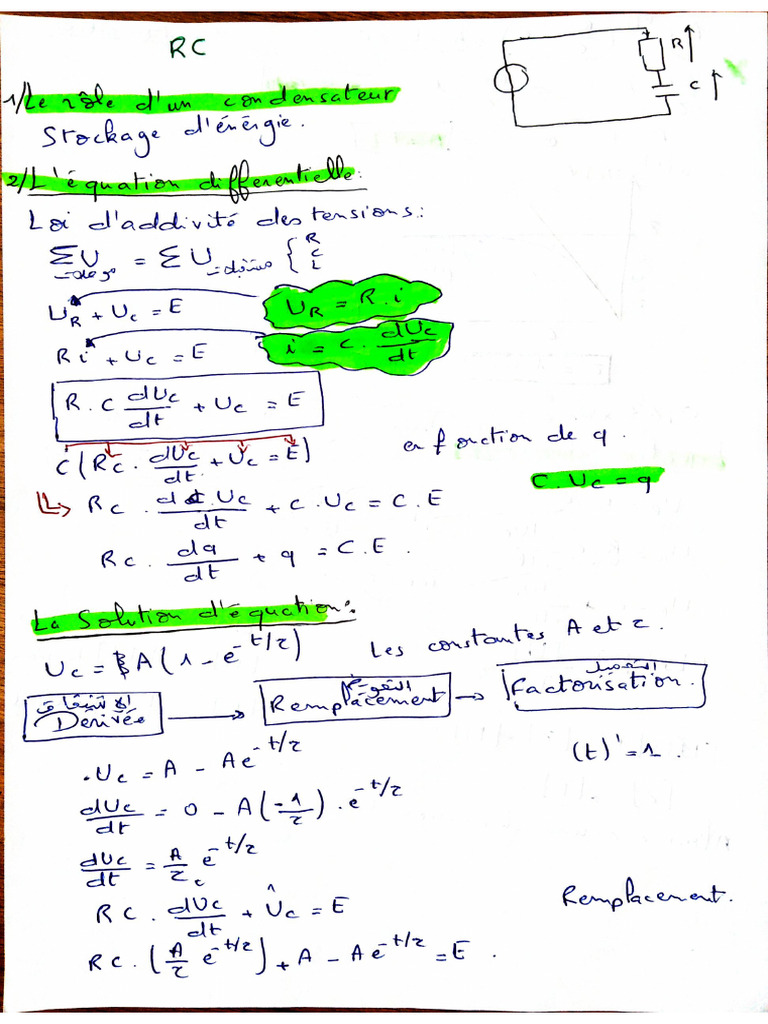 RC
R
C
1/ Le rôle d'un condensateur
Stockage d'énérgie.
2/ L'équation differentielle:
Loi d'addivité des tensions:
ΣU = ΣU { R C L
U_R + U_C = E
U_R = R.i
Ri + U_C = E
i = C. dU_C/dt
R.C dU_C/dt + U_C = E
en fonction de q.
C(RC. dU_C/dt + U_C = E)
C.U_C = q
↳ RC. dC.U_C/dt + C.U_C = C.E
RC. dq/dt + q = C.E.
La Solution d'équation:
U_C = A(1 - e^-t/τ)
Les constantes A et τ.
Dérivée → Remplacement → Factorisation.
التعويض
.U_C = A - Ae^-t/τ
(t)' = 1.
dU_C/dt = 0 - A(-1/τ).e^-t/τ
dU_C/dt = A/τ e^-t/τ
RC. dU_C/dt + U_C = E
Remplacement.
RC.(A/τ e^-t/τ) + A - Ae^-t/τ = E.